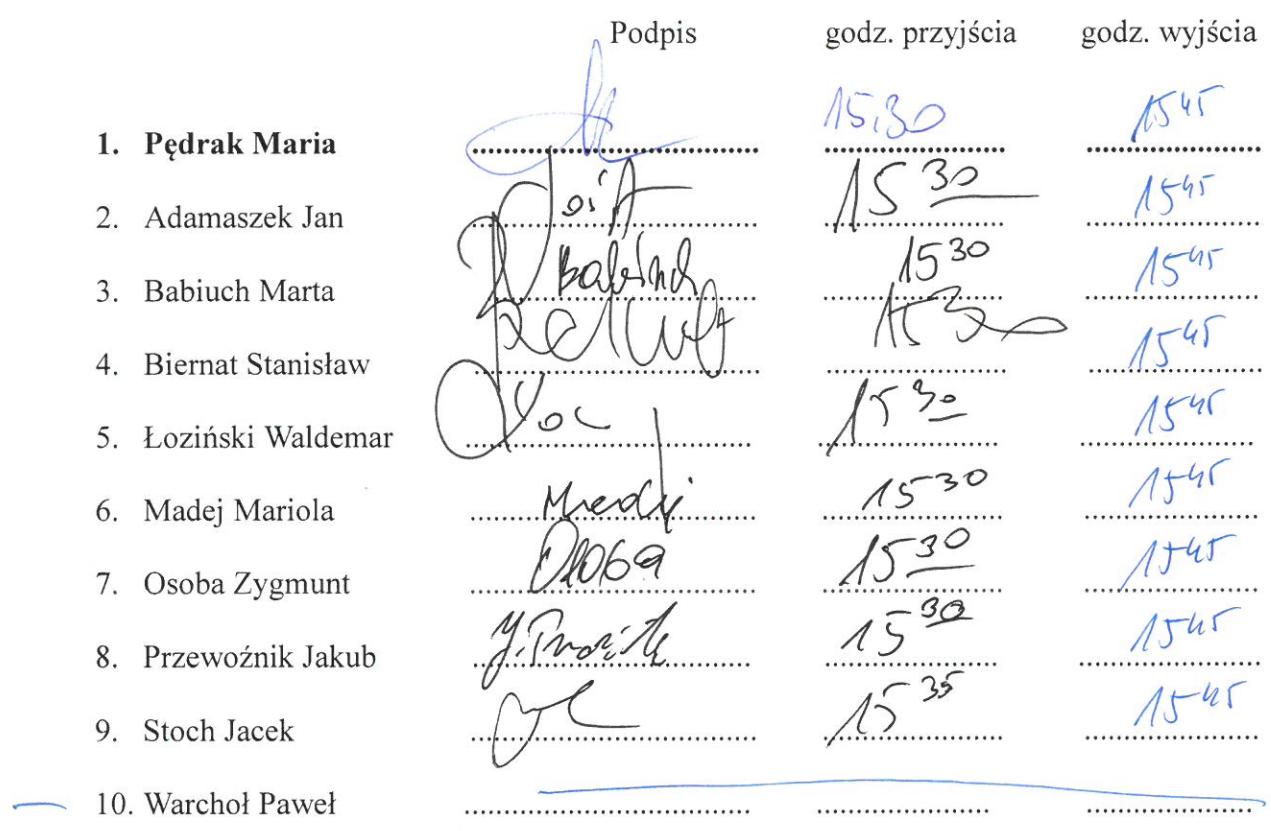 Podpis godz. przyjścia godz. wyjścia
1. Pędrak Maria 15:30 15 45
2. Adamaszek Jan 15 30 15 45
3. Babiuch Marta Babiuch 15 30 15 45
4. Biernat Stanisław 15 30 15 45
5. Łoziński Waldemar 15 30 15 45
6. Madej Mariola Madej 15 30 15 45
7. Osoba Zygmunt Osoba 15 30 15 45
8. Przewoźnik Jakub 15 30 15 45
9. Stoch Jacek 15 35 15 45
10. Warchoł Paweł